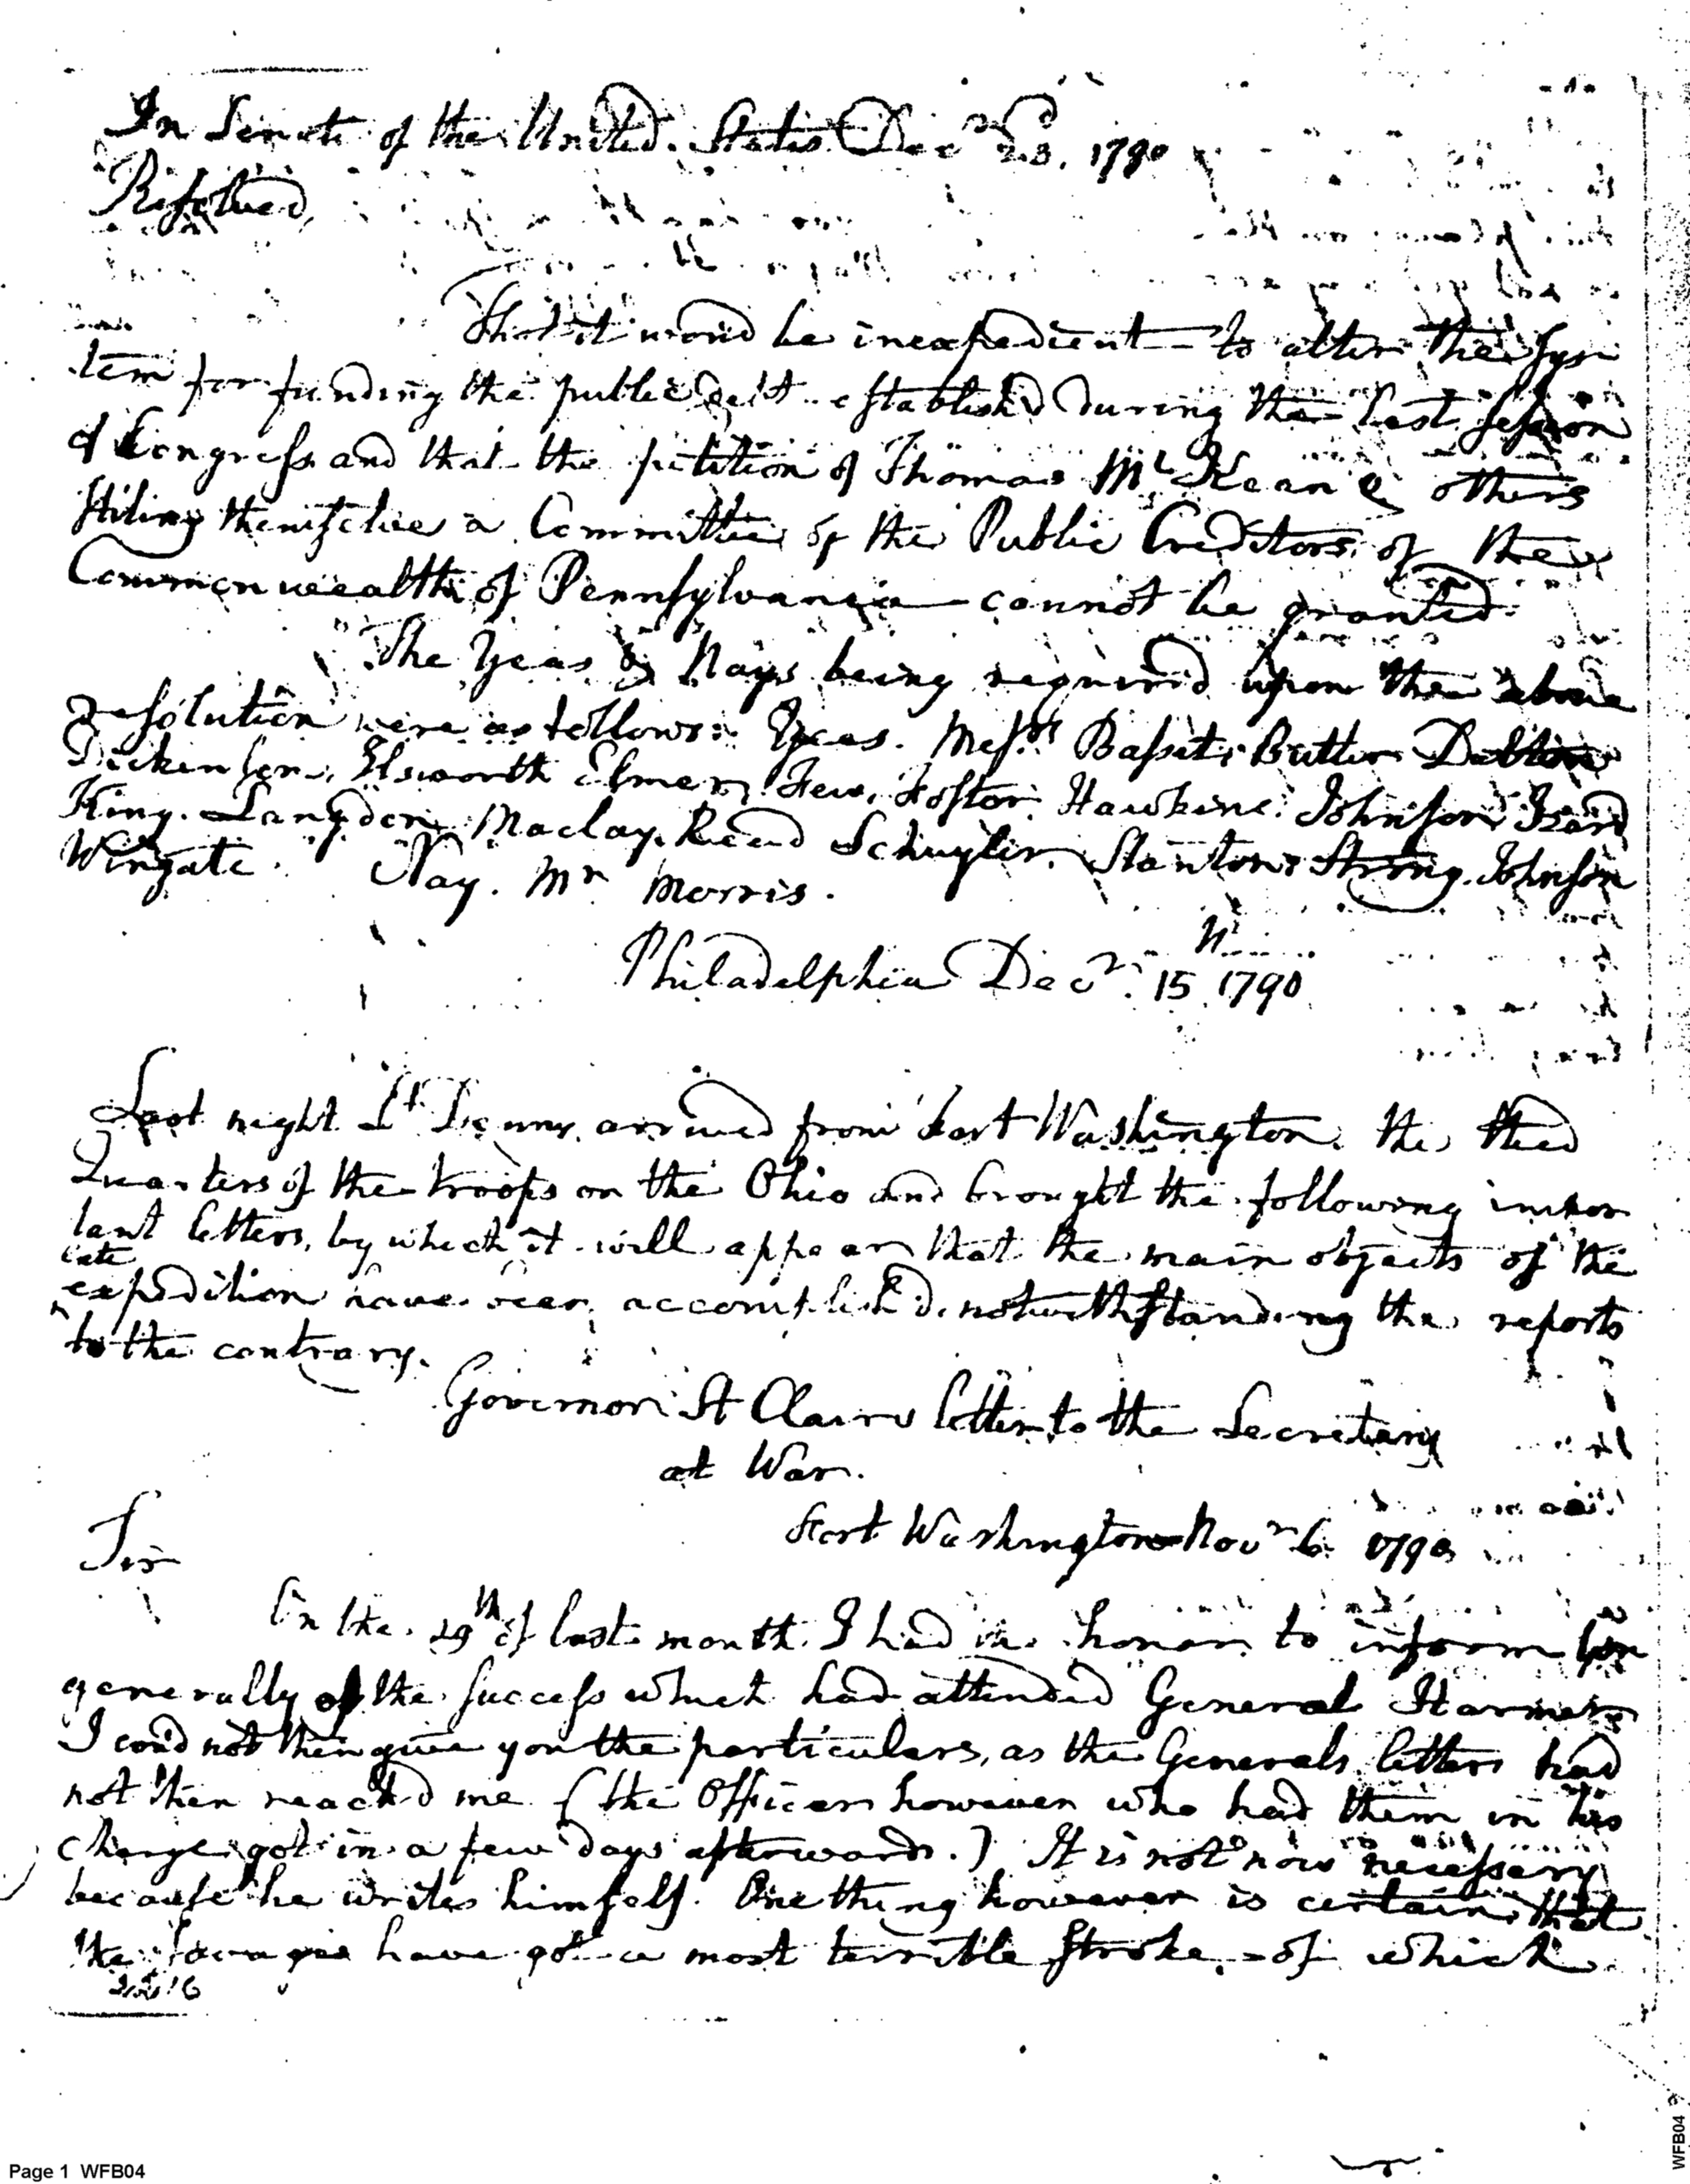 In Senate of the United States Dec 23d. 1790
Resolved,
That it woud be inexpedient to alter the sys
tem for funding the public debt establishd during the last session
of Congress and that the petition of Thomas Mc Kean & others
stiling themselves a Committee of the Public Creditors of the
Commonwealth of Pennsylvania cannot be granted.
The Yeas & Nays being requird upon the above
resolution were as follows: Yeas. Messrs Basset, Butler Dalton
Dickenson, Elsworth Elmer, Few, Foster Hawkins Johnson Izard
King. Langdon Maclay. Read Schuyler. Stanton Strong. Johnson
Wingate. Nay. Mr Morris.
Philadelphia Decr. 15 1790
Last night Lt Denny arrived from Fort Washington the Head
Quarters of the troops on the Ohio and brought the following impor
tant letters, by which it will appear that the main objects of the
late
expedition have been accomplishd, notwithstanding the reports
to the contrary.
Governor St Clairs letter to the Secretary
at War.
Fort Washington Novr 6 1790
Sir
On the 29th of last month I had the honor to inform you
generally of the success which had attended General Harmer
I coud not then give you the particulars, as the Generals letters had
not then reachd me (the Officer however who had them in his
charge got in a few days afterwards.) It is not now necessary
because he writes himself. One thing however is certain that
the savages have got a most terrible stroke, of which
Page 1 WFB04
WFB04